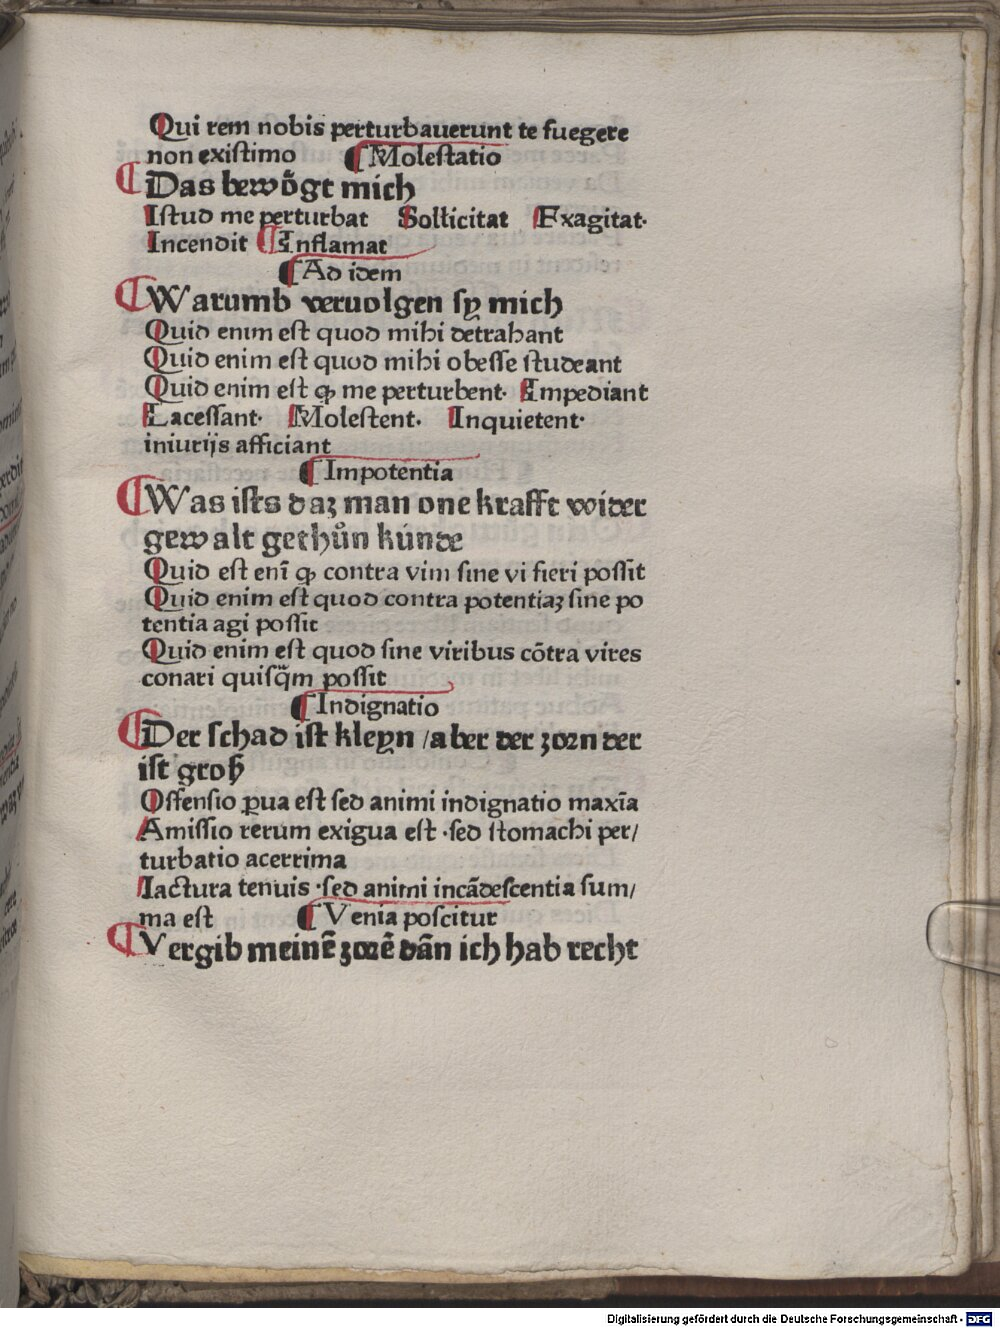 Qui rem nobis perturbauerunt te fuegere
non existimo ¶ Molestatio
¶ Das bewoͤgt mich
Istud me perturbat Sollicitat Exagitat·
Incendit ¶ Inflamat
¶ Ad idem
¶ Warumb veruolgen sy mich
Quid enim est quod mihi detrahant
Quid enim est quod mihi obesse studeant
Quid enim est ꝙ me perturbent· Impediant
Lacessant· Molestent. Inquietent·
iniurijs afficiant
¶ Impotentia
¶ Was ists daz man one krafft wider
gewalt gethuͦn kúnde
Quid est enī ꝙ contra vim sine vi fieri possit
Quid enim est quod contra potentiaꝫ sine po
tentia agi possit
Quid enim est quod sine viribus cōtra vires
conari quisq̈m possit
¶ Indignatio
¶ Der schad ist kleyn /aber der zorn der
ist groß
Offensio ꝑua est sed animi indignatio maxīa
Amissio rerum exigua est ·sed stomachi per/
turbatio acerrima
Iactura tenuis ·sed animi incādescentia sum/
ma est ¶ Venia poscitur
¶ Vergib meinē zorē dān ich hab recht
Digitalisierung gefördert durch die Deutsche Forschungsgemeinschaft - DFG